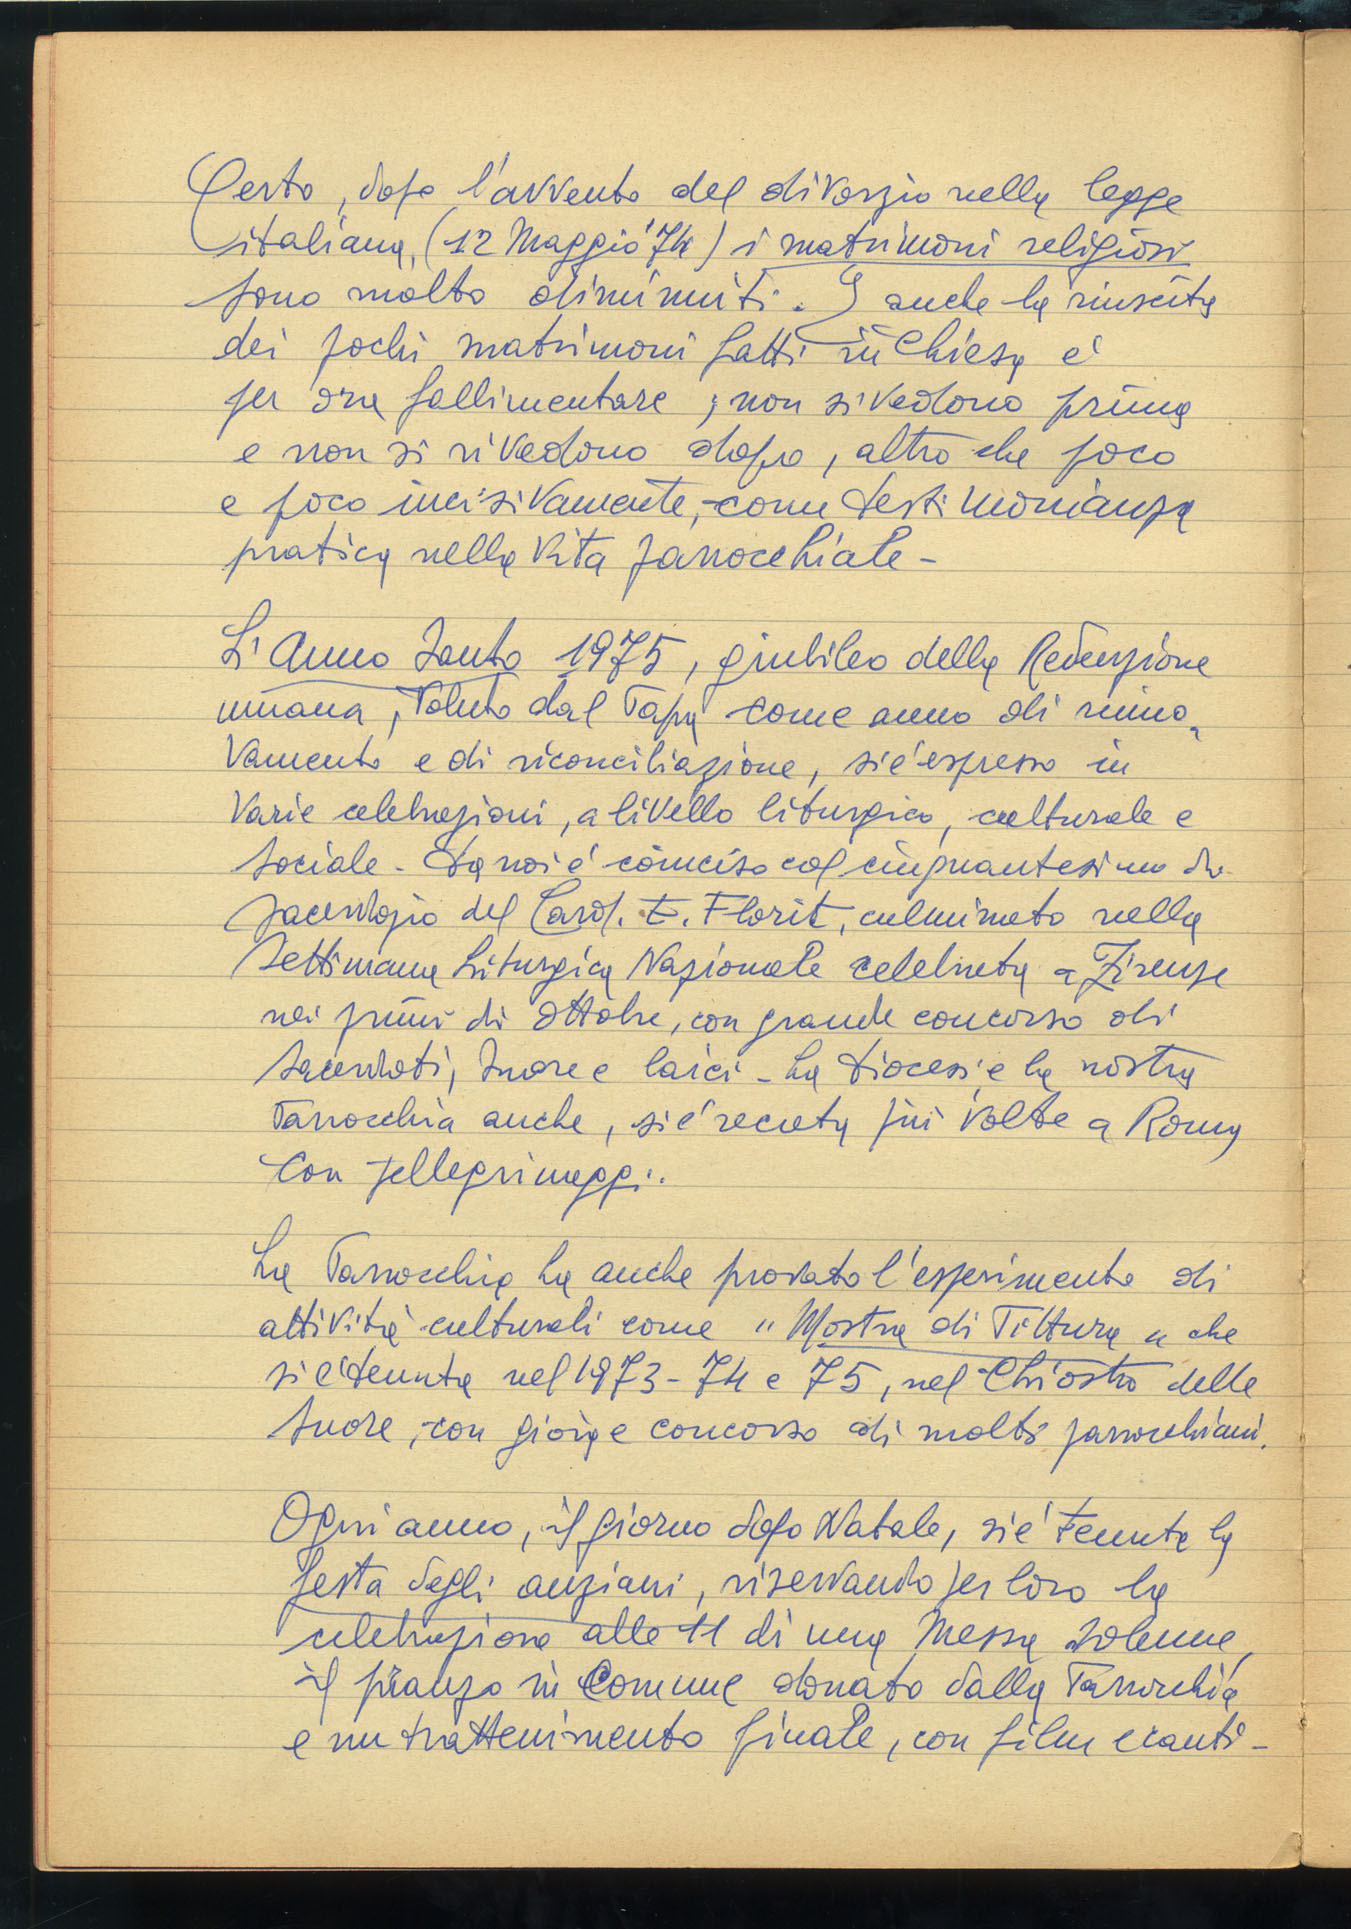 Certo, dopo l'avvento del divorzio nella legge
italiana, (12 Maggio '74) i matrimoni religiosi
sono molto diminuiti. E anche la riuscita
dei pochi matrimoni fatti in Chiesa e'
per ora fallimentare; non si vedono prima
e non si rivedono dopo, altro che poco
e poco incisivamente, come testimonianza
pratica nella vita parrocchiale -
L'Anno Santo 1975, giubileo della Redenzione
umana, voluto dal Papa come anno di rinno-
vamento e di riconciliazione, si e' espresso in
varie celebrazioni, a livello liturgico, culturale e
sociale - Da noi e' coinciso col cinquantesimo di
sacerdozio del Card. E. Florit, culminato nella
Settimana Liturgica Nazionale celebrata a Firenze
nei primi di Ottobre, con grande concorso di
sacerdoti, Suore e laici - La Diocesi, e la nostra
Parrocchia anche, si e' recata più volte a Roma
con pellegrinaggi.
La Parrocchia ha anche provato l'esperimento di
attività culturali come "Mostra di Pittura" che
si e' tenuta nel 1973-74 e 75, nel Chiostro delle
Suore, con gioia e concorso di molti parrocchiani.
Ogni anno, il giorno dopo Natale, si e' tenuta la
festa degli anziani, riservando per loro la
celebrazione alle 11 di una Messa solenne,
il pranzo in Comune donato dalla Parrocchia
e un trattenimento finale, con film e canti -